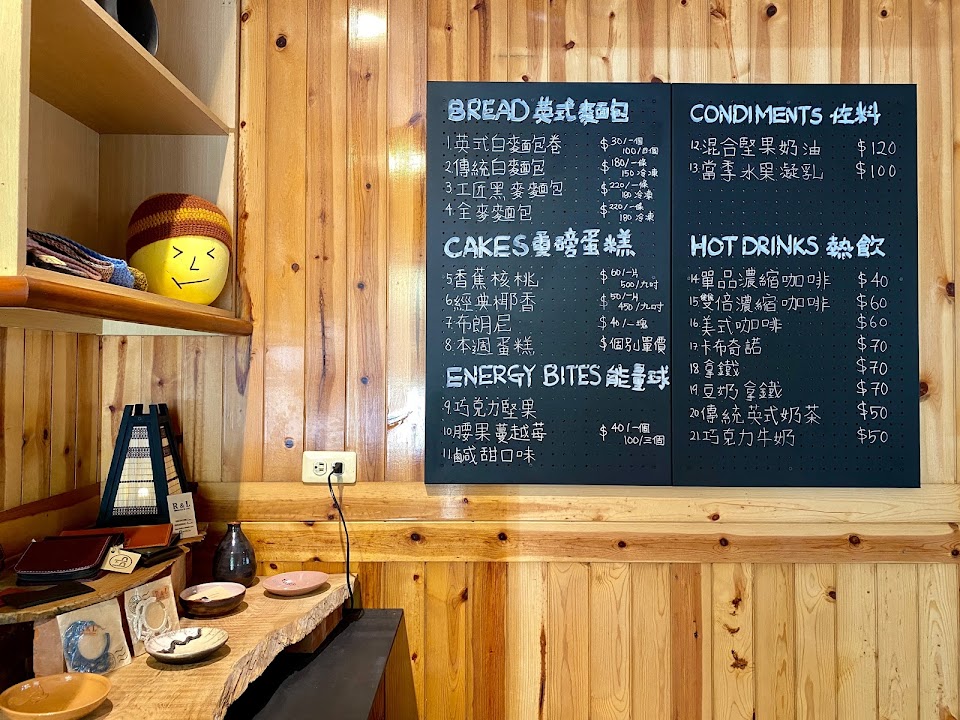 BREAD 英式麵包
1.英式白麵包卷 $30/一個
100/四個
2.傳統白麵包 $180/一條
150冷凍
3.工匠黑麥麵包 $220/一條
180冷凍
4.全麥麵包 $220/一條
180冷凍
CAKES 重磅蛋糕
5.香蕉核桃 $60/一片
500/九吋
6.經典椰香 $50/一片
450/九吋
7.布朗尼 $40/一塊
8.本週蛋糕 $個別單價
ENERGY BITES 能量球
9.巧克力堅果
10.腰果蔓越莓 $40/一個
100/三個
11.鹹甜口味
CONDIMENTS 佐料
12.混合堅果奶油 $120
13.當季水果凝乳 $100
HOT DRINKS 熱飲
14.單品濃縮咖啡 $40
15.雙倍濃縮咖啡 $60
16.美式咖啡 $60
17.卡布奇諾 $70
18.拿鐵 $70
19.豆奶拿鐵 $70
20.傳統英式奶茶 $50
21.巧克力牛奶 $50
R & L
R&L